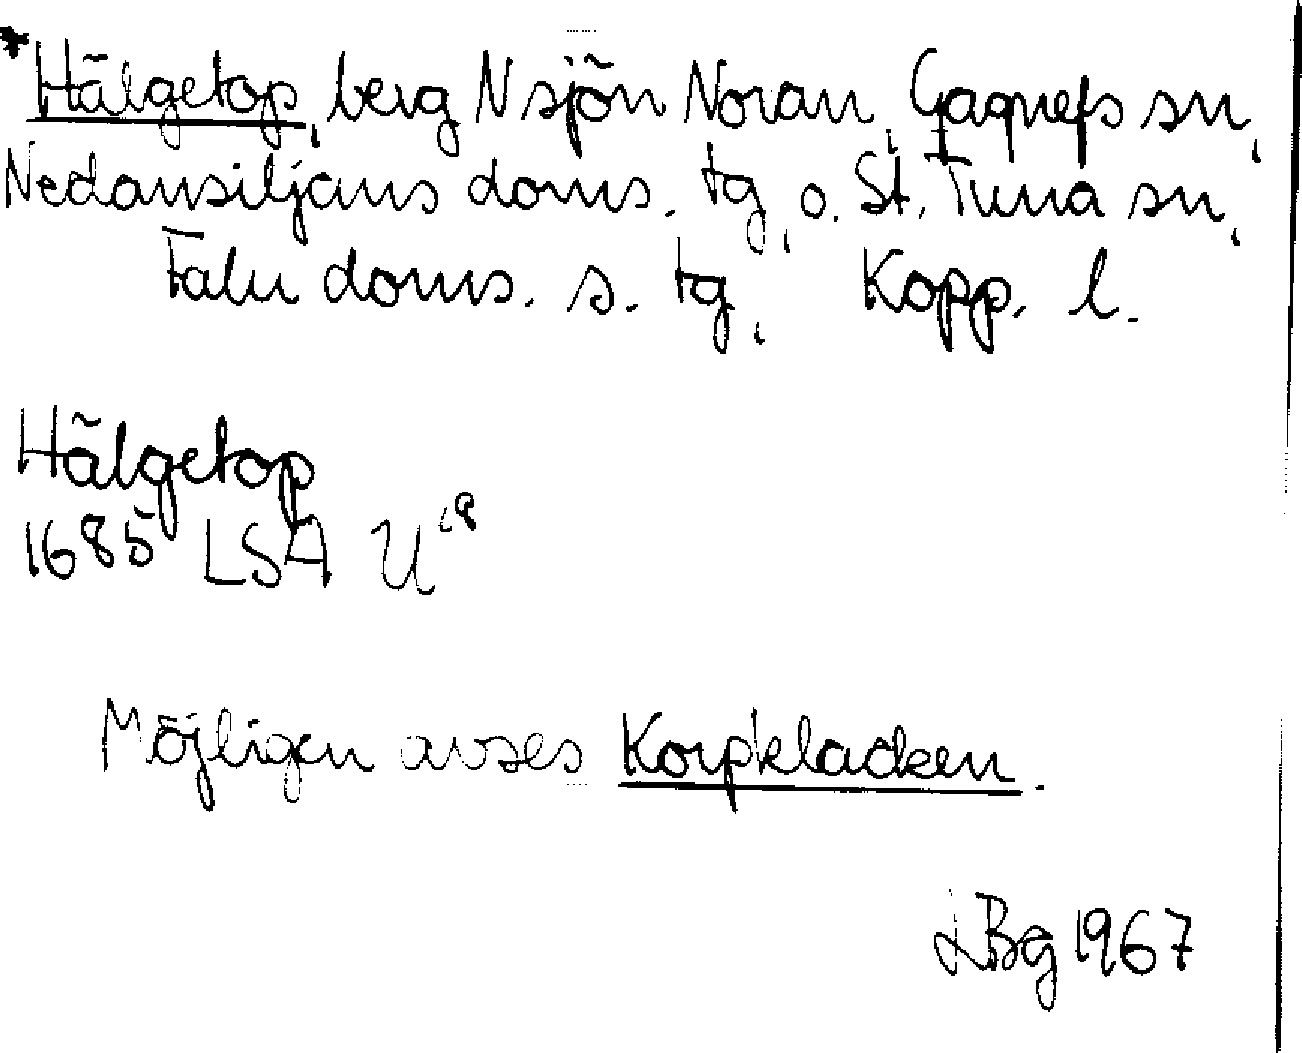 *Hälgetop, berg N sjön Noran, Gagnefs sn,
Nedansiljans doms. tg, o. St. Tuna sn,
Falu doms. s. tg, Kopp. l.
Hälgetop
1685 LSA U
Möjligen avses Korpklacken.
LBg 1967